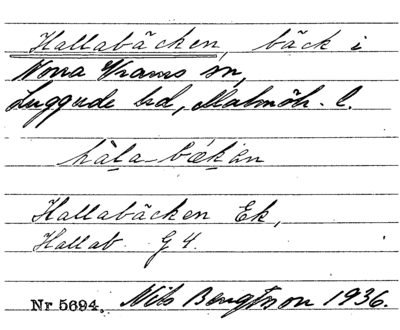 Hallabäcken, bäck i
Norra Vrams sn,
Luggude hd, Malmöh. l.
hàla-bækən
Hallabäcken Ek,
Hallab. G 4.
Nr 5694. Nils Bengtsson 1936.